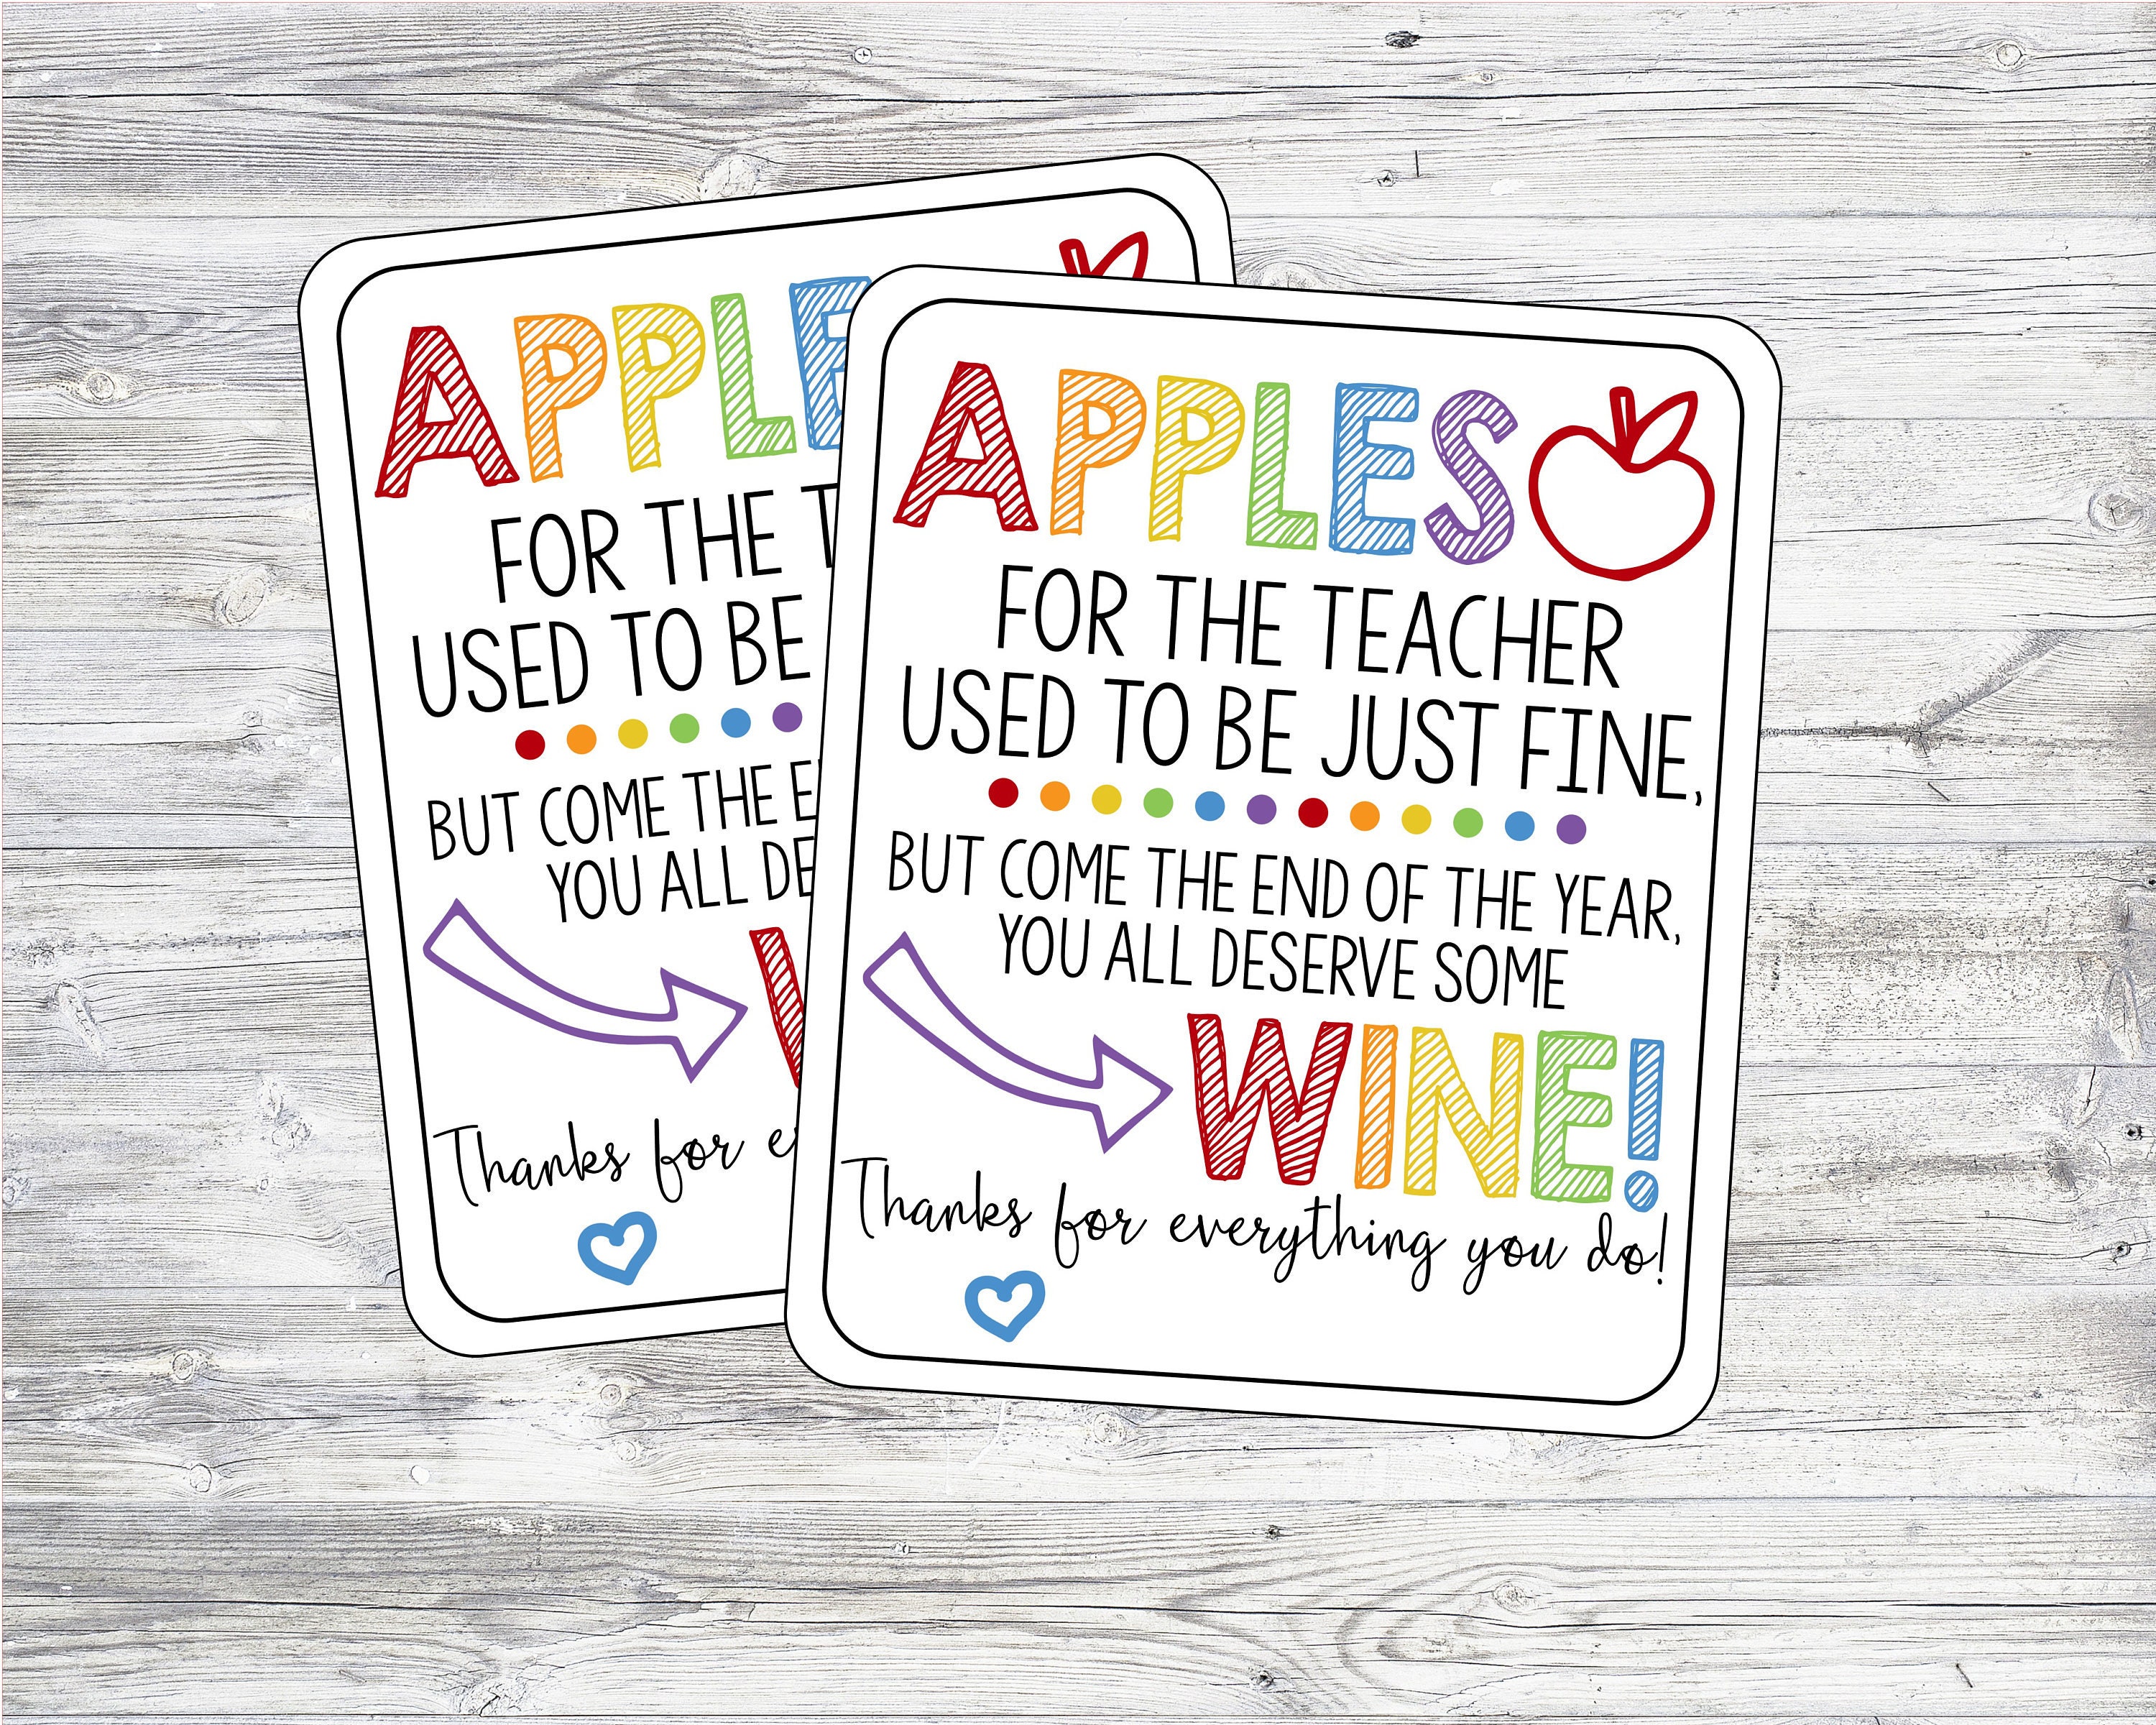 APPLES
FOR THE T
USED TO BE
BUT COME THE E
YOU ALL DE
Thanks for e
APPLES
FOR THE TEACHER
USED TO BE JUST FINE,
BUT COME THE END OF THE YEAR,
YOU ALL DESERVE SOME
WINE!
Thanks for everything you do!